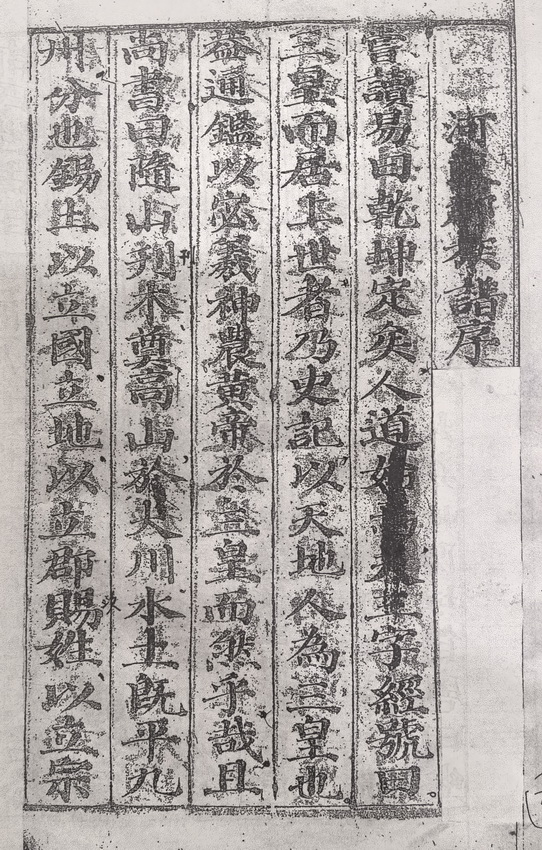 河族譜序
嘗讀易曰乾坤定矣人道始生字經號曰
三皇而居上世者乃史記以天地人為三皇也
蓋通鑑以宓羲神農黃帝於三皇而然乎哉且
尚書曰隨山刊木奠高山於大川水土既平九
州分也錫土以立國立地以立郡賜姓以立宗